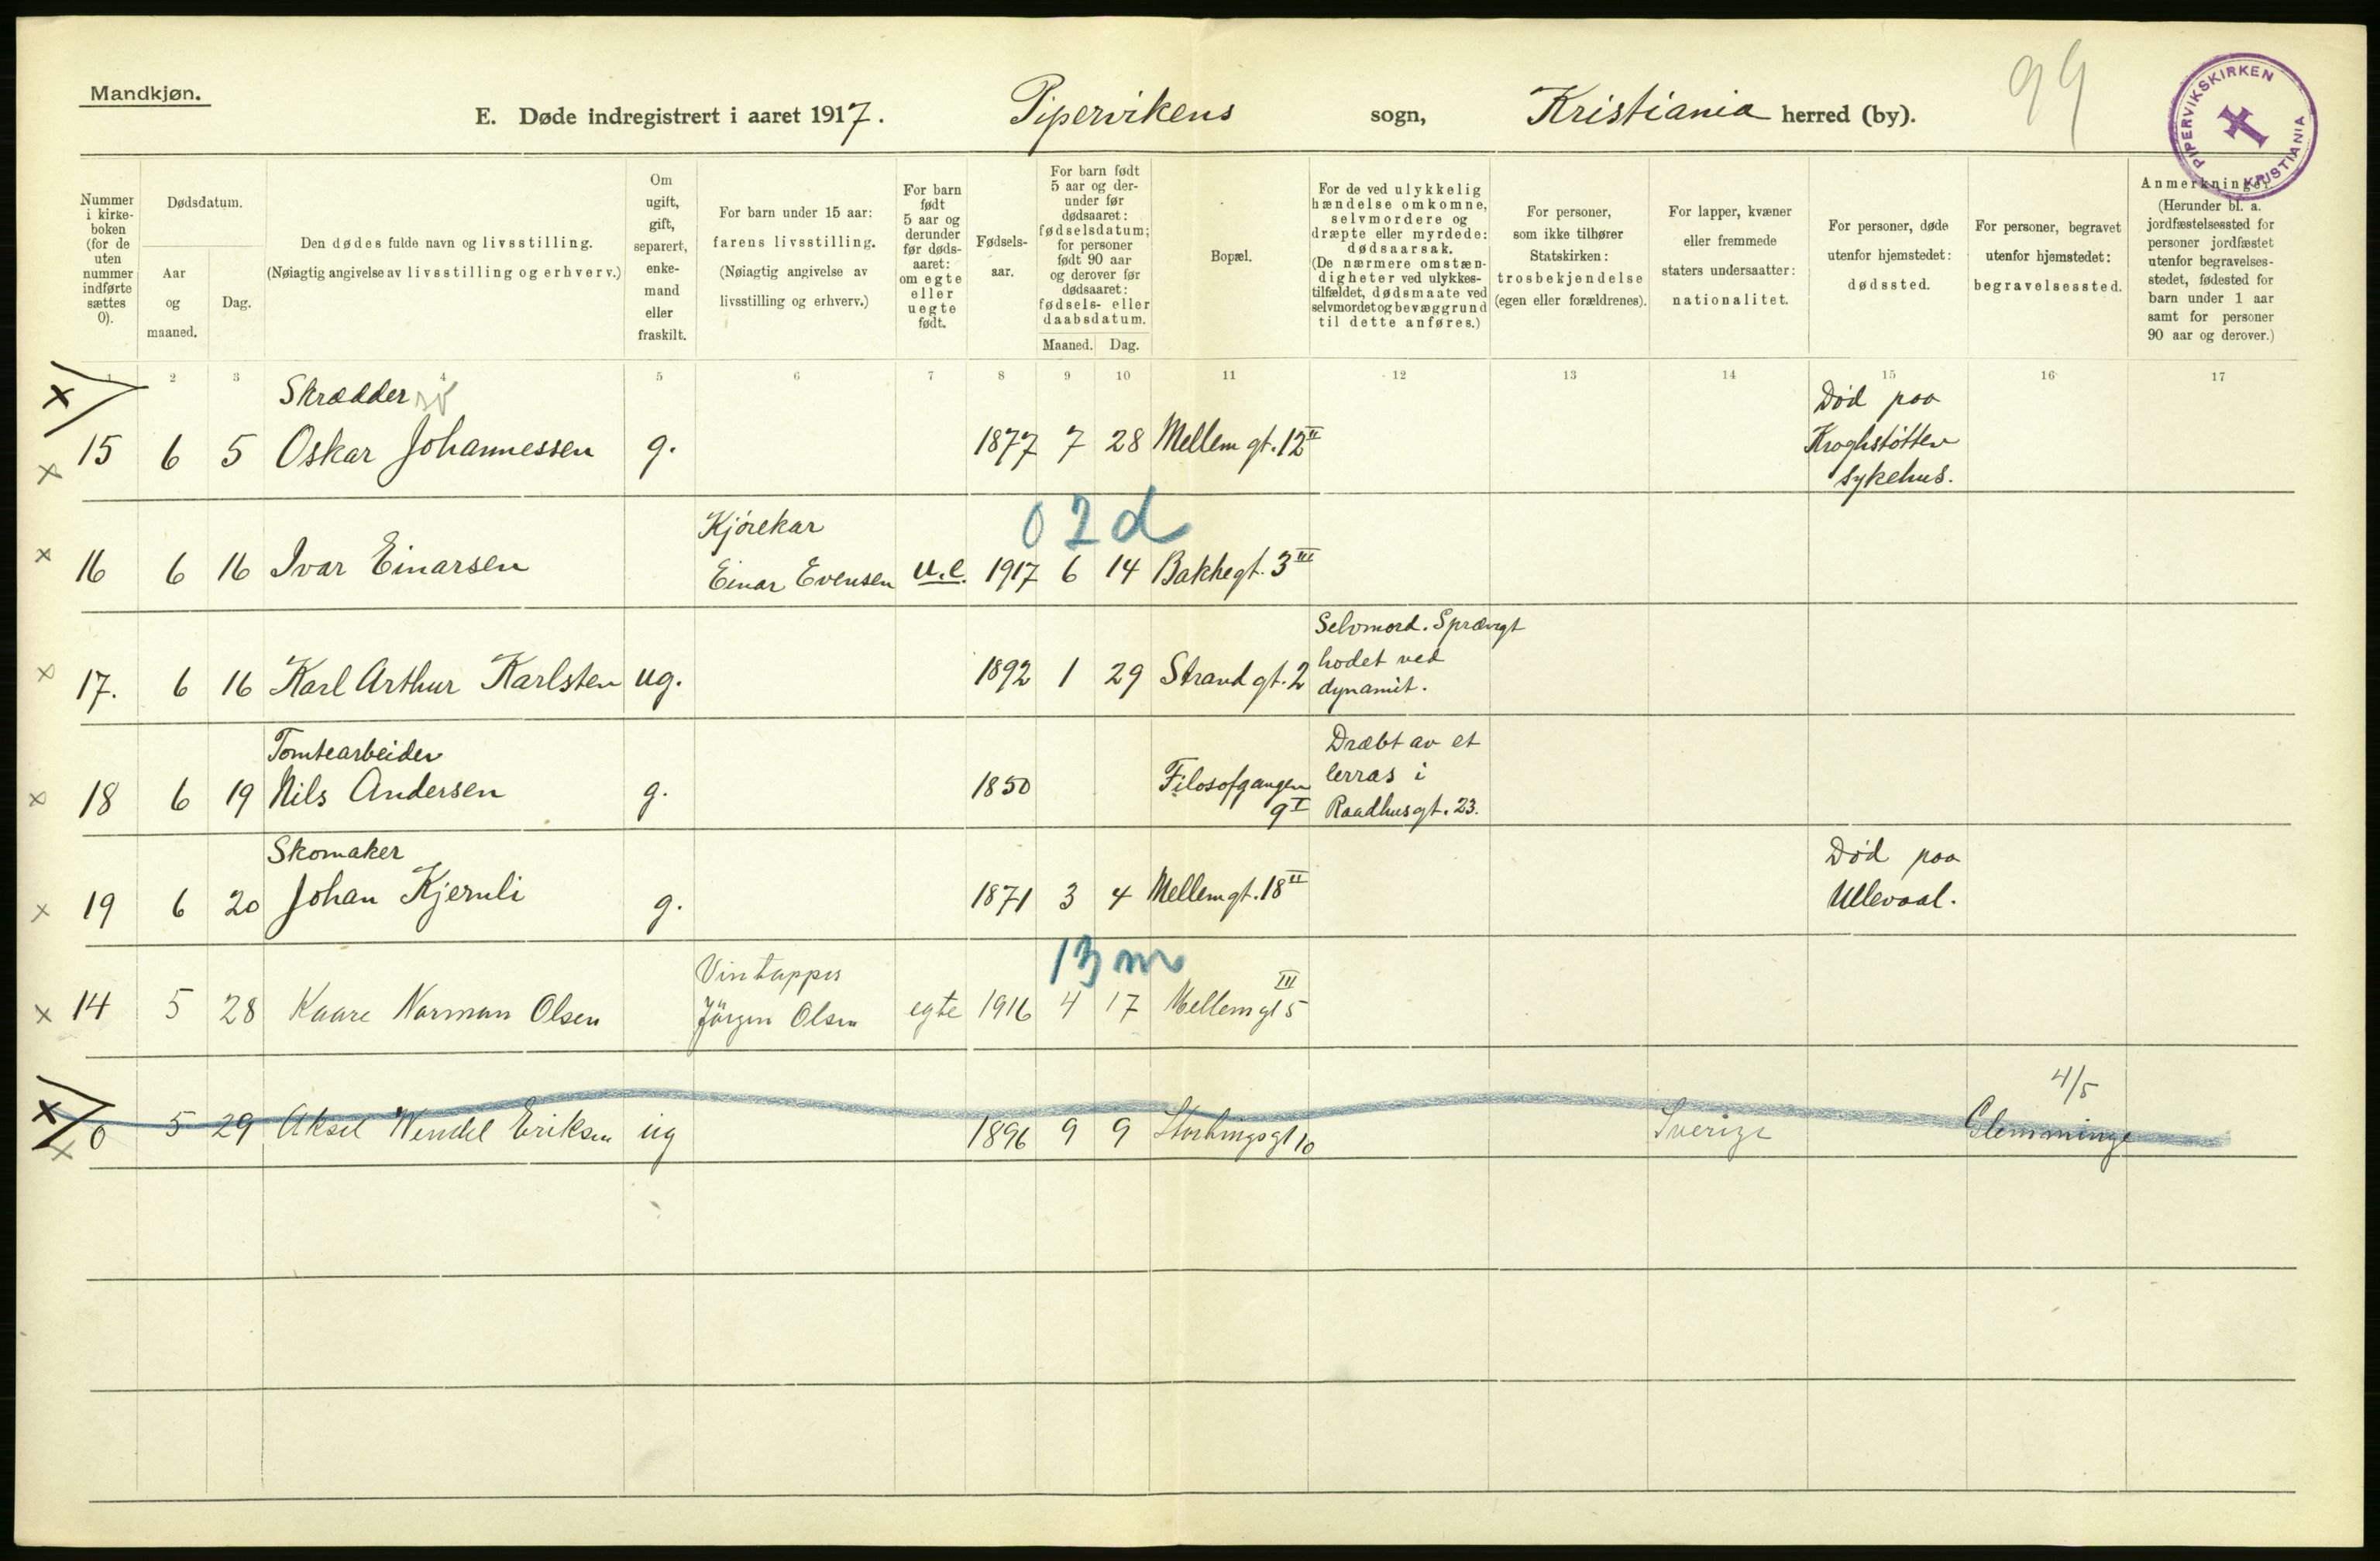 Mandkjøn.
E. Døde indregistrert i aaret 1917. Pipervikens sogn, Kristiania herred (by).
99
PIPERVIKSKIRKEN KRISTIANIA
Nummer i kirkeboken (for de uten nummer indførte sættes 0).
Dødsdatum.
Aar og maaned.
Dag.
Den dødes fulde navn og livsstilling.
(Nøiagtig angivelse av livsstilling og erhverv.)
Om ugift, gift, separert, enkemand eller fraskilt.
For barn under 15 aar: farens livsstilling. (Nøiagtig angivelse av livsstilling og erhverv.)
For barn født 5 aar og derunder før dødsaaret: om egte eller uegte født.
Fødselsaar.
For barn født 5 aar og derunder før dødsaaret: fødselsdatum; for personer født 90 aar og derover før dødsaaret: fødsels- eller daabsdatum.
Maaned. Dag.
Bopæl.
For de ved ulykkelig hændelse omkomne, selvmordere og dræpte eller myrdede: dødsaarsak. (De nærmere omstændigheter ved ulykkestilfældet, dødsmaate ved selvmordet og bevæggrund til dette anføres.)
For personer, som ikke tilhører Statskirken: trosbekjendelse (egen eller forældrenes).
For lapper, kvæner eller fremmede staters undersaatter: nationalitet.
For personer, døde utenfor hjemstedet: dødssted.
For personer, begravet utenfor hjemstedet: begravelsessted.
Anmerkninger. (Herunder bl. a. jordfæstelsessted for personer jordfæstet utenfor begravelsesstedet, fødested for barn under 1 aar samt for personer 90 aar og derover.)
1 2 3 4 5 6 7 8 9 10 11 12 13 14 15 16 17
Skrædder
Død paa
15 6 5 Oskar Johannessen g. 1877 7 28 Mellemgt. 12 II Kroghstøtten
sykehus.
Kjørekar 02d
16 6 16 Ivar Einarsen Einar Evensen u.e. 1917 6 14 Bakkegt. 3 III
Selvmord. Sprængt
17. 6 16 Karl Arthur Karlsten ug. 1892 1 29 Strandgt. 2 hodet ved
dynamit.
Tomtearbeider Dræbt av et
18 6 19 Nils Andersen g. 1850 Filosofgangen lerras i
9 I Raadhusgt. 23.
Skomaker Død paa
19 6 20 Johan Kjernli g. 1871 3 4 Mellemgt. 18 II Ullevaal.
Vintapper 13m
14 5 28 Kaare Norman Olsen Jörgen Olsen egte 1916 4 17 Mellemgt 5 III
4/5
0 5 29 Aksel Wendel Eriksen ug 1896 9 9 Stortingsgt 10 Sverige Glemminge